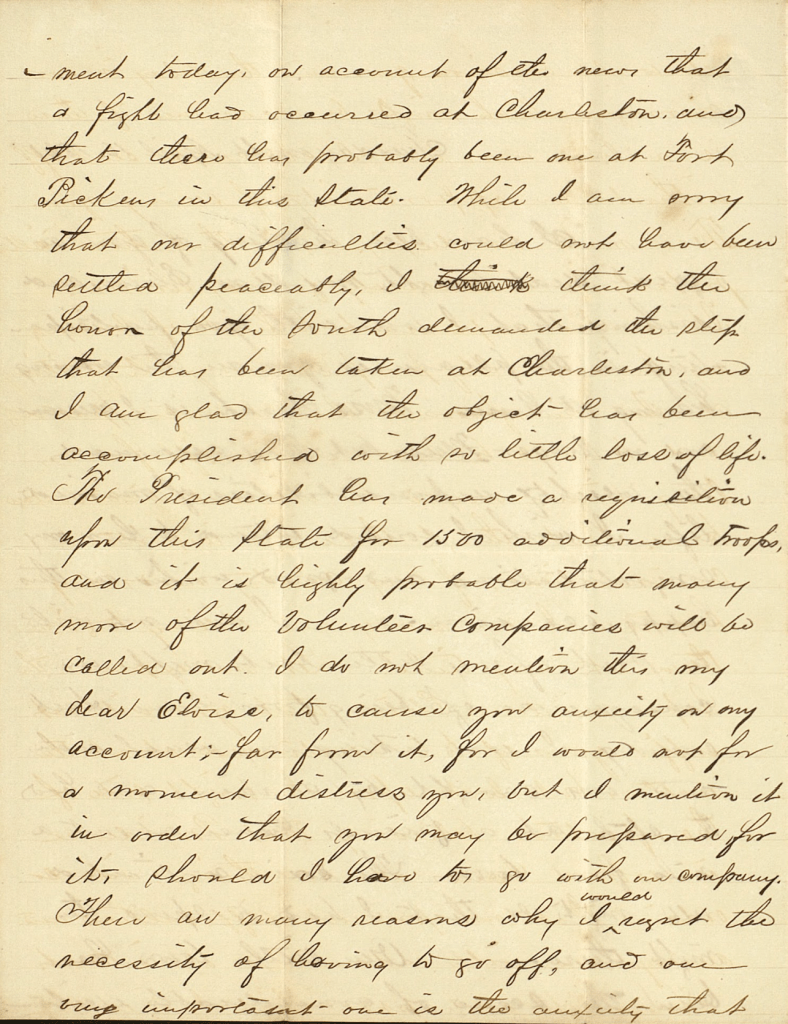 -ment today, on account of the news that
a fight had occurred at Charleston, and
that there has probably been one at Fort
Pickens in this State. While I am sorry
that our difficulties could not have been
settled peaceably, I think the
honor of the South demanded the step
that has been taken at Charleston, and
I am glad that the object has been
accomplished with so little loss of life.
The President has made a requisition
upon this State for 1500 additional troops,
and it is highly probable that many
more of the Volunteer Companies will be
called out. I do not mention this my
dear Eloise, to cause you anxiety on my
account;- far from it, for I would not for
a moment distress you, but I mention it
in order that you may be prepared for
it, should I have to go with our company.
There are many reasons why I would regret the
necessity of having to go off, and one
very important one is the anxiety that